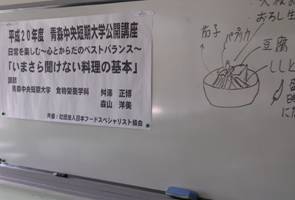 平成20年度 青森中央短期大学公開講座
日常を楽しむ～心とからだのベストバランス～
「いまさら聞けない料理の基本」
講師
青森中央短期大学 食物栄養学科 舛澤 正博
森山 洋美
共催:社団法人日本フードスペシャリスト協会
おろし生
茄子
パプリカ
豆腐
ししと